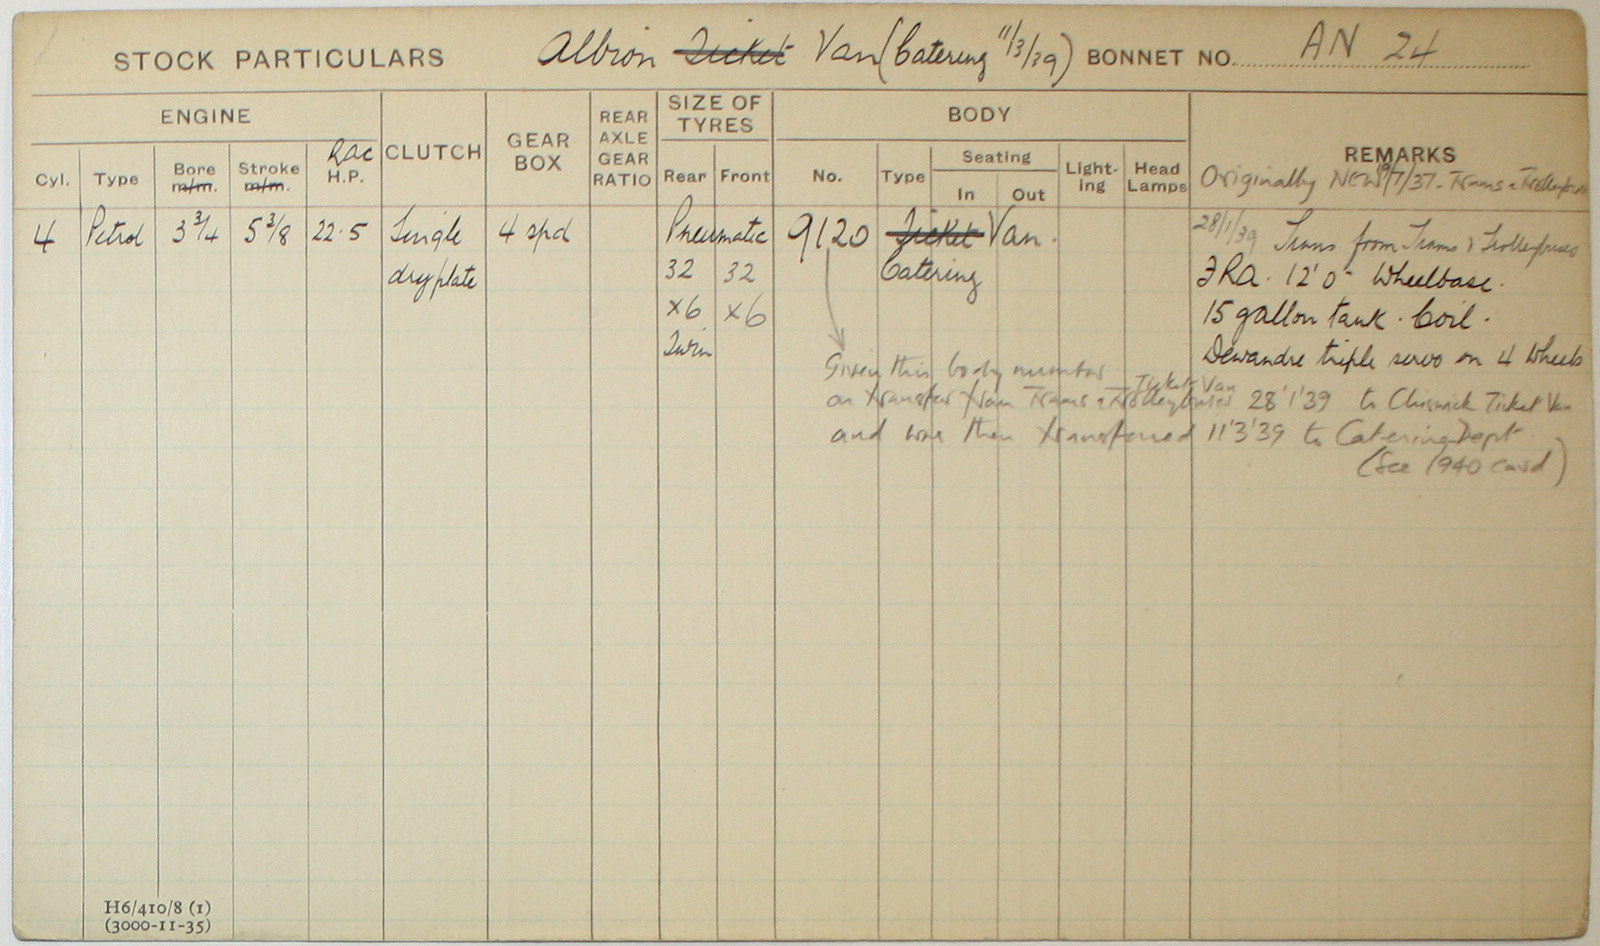 STOCK PARTICULARS Albion Ticket Van (Catering 11/3/39) BONNET NO. AN 24
ENGINE
Cyl. Type Bore m/m. Stroke m/m. RAC H.P.
CLUTCH
GEAR BOX
REAR AXLE GEAR RATIO
SIZE OF TYRES
Rear Front
BODY
No. Type Seating In Out Light-ing Head Lamps
REMARKS
Originally NEW 9/7/37 - Trams & Trolleybuses
4 Petrol 3 3/4 5 3/8 22.5 Single 4 spd Pneumatic 9120 Ticket Van. 28/1/39 Trans from Trams & Trolleybuses
dry plate 32 32 Catering FRA. 12'0" Wheelbase.
x6 x6 15 gallon tank. Coil.
Twin Dewandre triple servo on 4 Wheels
Given this body number
Ticket Van
on transfer from Trams & Trolleybuses 28'1'39 to Chiswick Ticket Van
and was then transferred 11'3'39 to Catering Dept.
(See 1940 card)
H6/410/8 (1)
(3000-11-35)